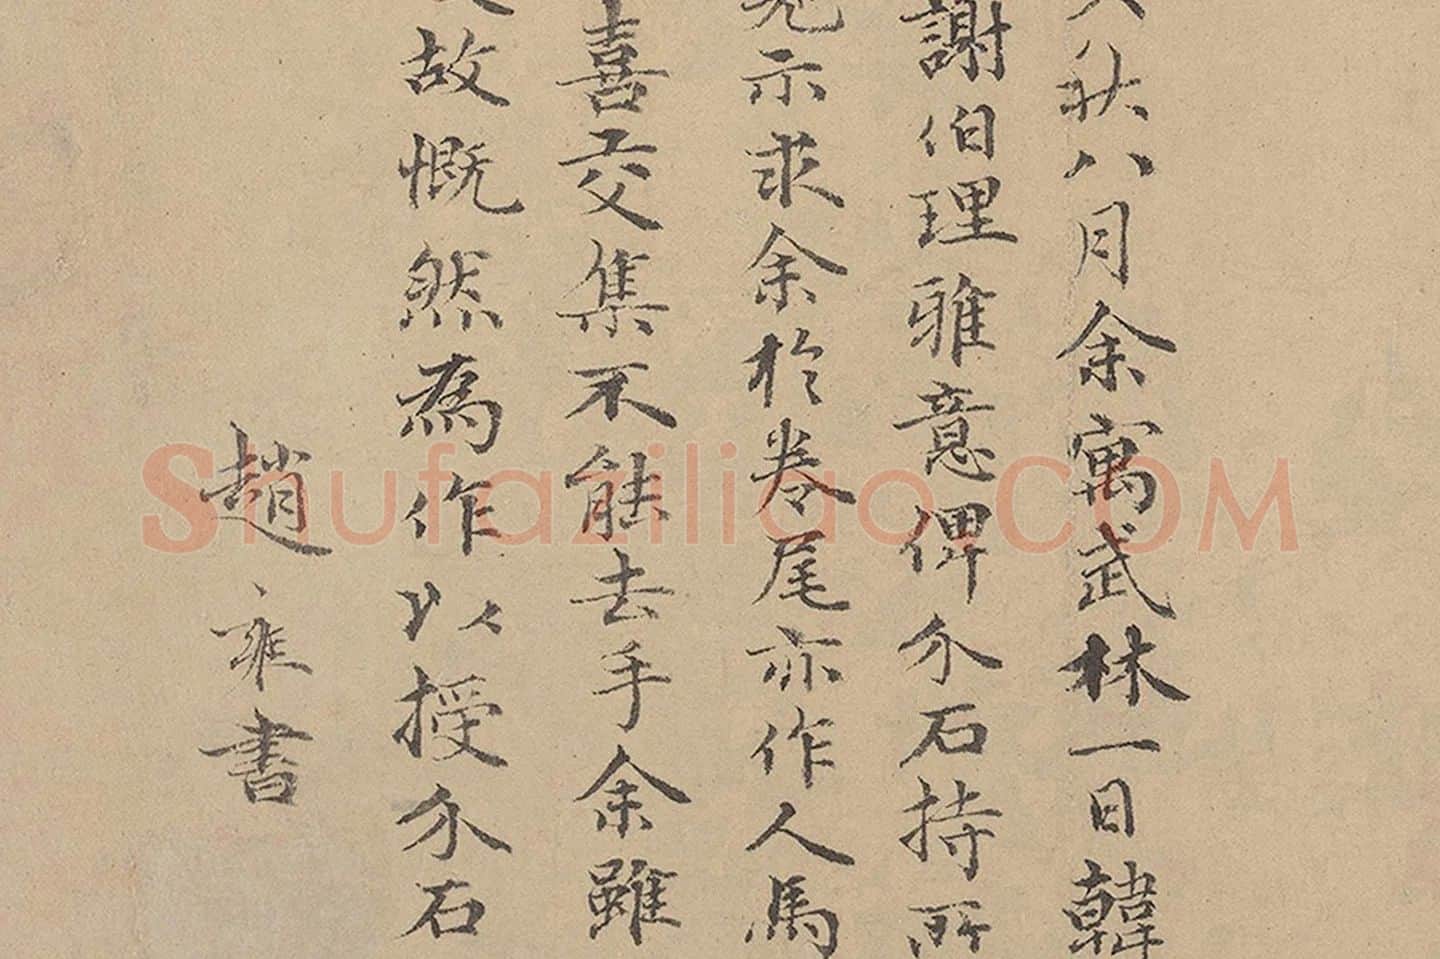 秋八月余寓武林一日韓
謝伯理雅意俾介石持所
示求余於卷尾亦作人馬
喜交集不能去手余雖
故慨然為作以授介石
趙雍書
Shufaziliao.COM